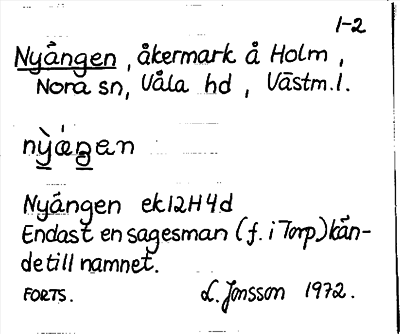 1-2
Nyången, åkermark å Holm,
Nora sn, Våla hd, Västm.l.
Nyången ek 12H4d
Endast en sagesman (f. i Torp) kän-
de till namnet.
FORTS. L. Jonsson 1972.